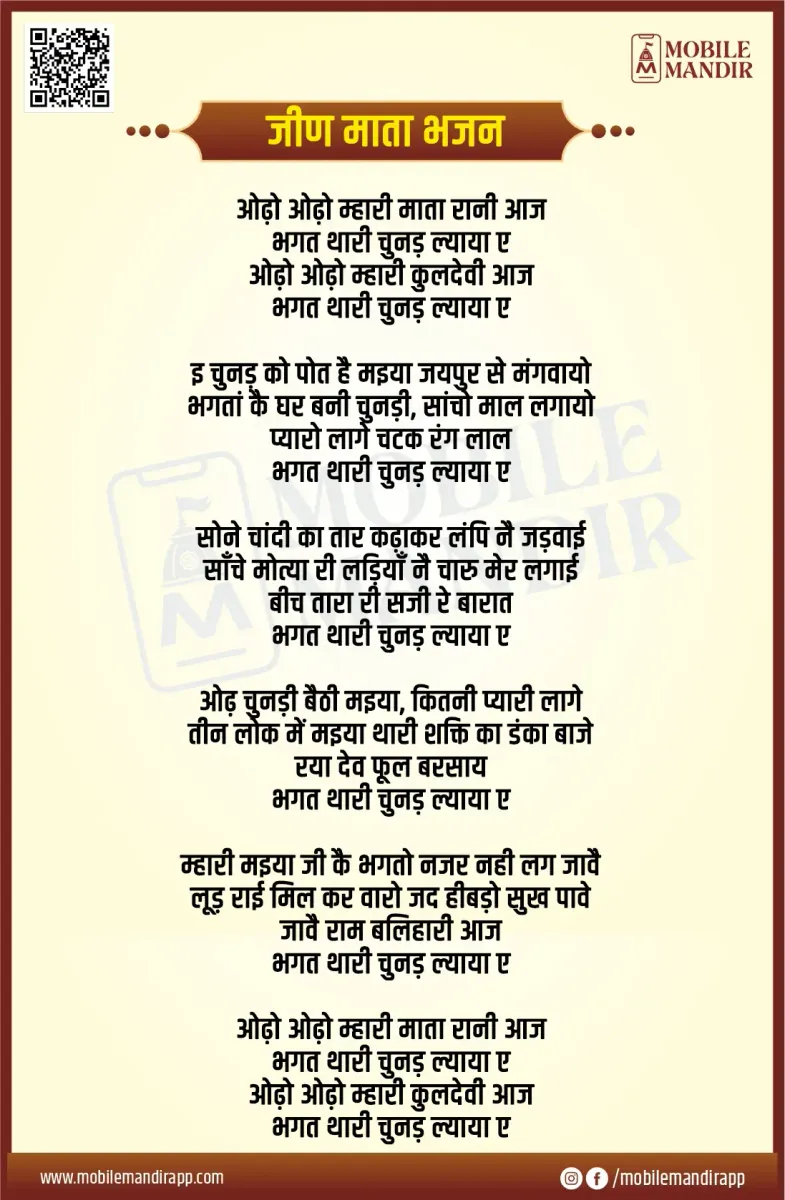 MOBILE
MANDIR
जीण माता भजन
ओढ़ो ओढ़ो म्हारी माता रानी आज
भगत थारी चुनड़ ल्याया ए
ओढ़ो ओढ़ो म्हारी कुलदेवी आज
भगत थारी चुनड़ ल्याया ए
इ चुनड़ को पोत है मइया जयपुर से मंगवायो
भगतां कै घर बनी चुनड़ी, सांचो माल लगायो
प्यारो लागे चटक रंग लाल
भगत थारी चुनड़ ल्याया ए
सोने चांदी का तार कढ़ाकर लंपि नै जड़वाई
साँचे मोत्या री लड़ियाँ नै चारु मेर लगाई
बीच तारा री सजी रे बारात
भगत थारी चुनड़ ल्याया ए
ओढ़ चुनड़ी बैठी मइया, कितनी प्यारी लागे
तीन लोक में मइया थारी शक्ति का डंका बाजे
रया देव फूल बरसाय
भगत थारी चुनड़ ल्याया ए
म्हारी मइया जी कै भगतो नजर नही लग जावै
लूड़ राई मिल कर वारो जद हीबड़ो सुख पावे
जावै राम बलिहारी आज
भगत थारी चुनड़ ल्याया ए
ओढ़ो ओढ़ो म्हारी माता रानी आज
भगत थारी चुनड़ ल्याया ए
ओढ़ो ओढ़ो म्हारी कुलदेवी आज
भगत थारी चुनड़ ल्याया ए
MOBILE
MANDIR
www.mobilemandirapp.com
/mobilemandirapp